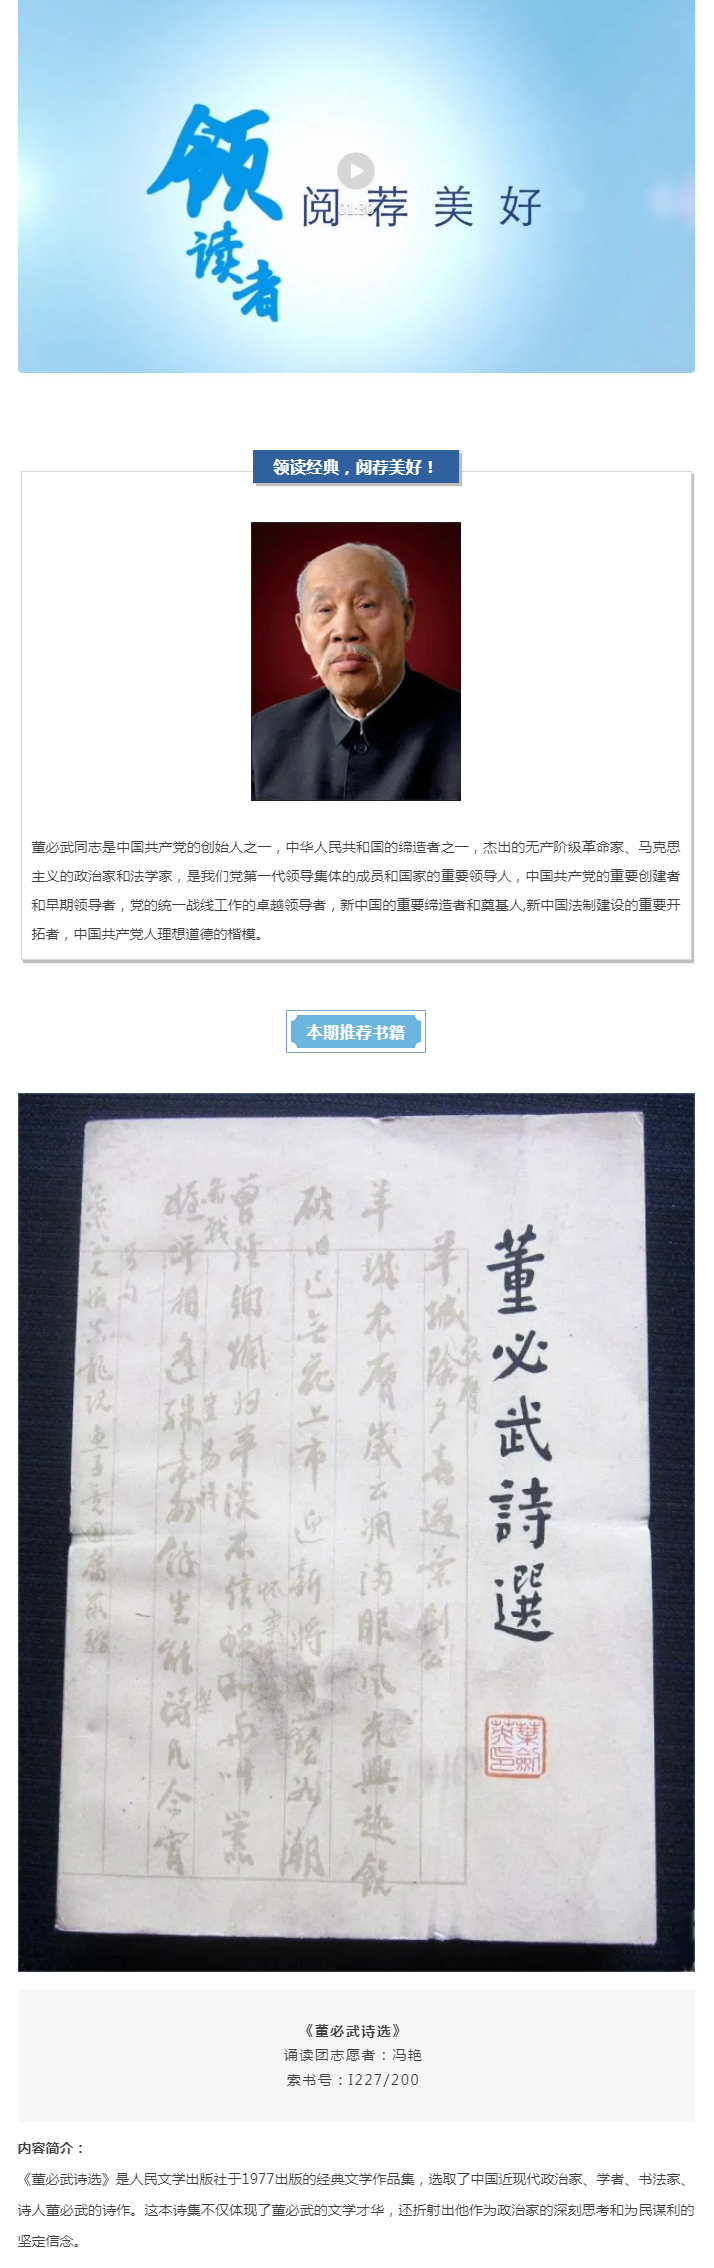 领
读
者
阅荐美好
01:30
领读经典，阅荐美好！
董必武同志是中国共产党的创始人之一，中华人民共和国的缔造者之一，杰出的无产阶级革命家、马克思
主义的政治家和法学家，是我们党第一代领导集体的成员和国家的重要领导人，中国共产党的重要创建者
和早期领导者，党的统一战线工作的卓越领导者，新中国的重要缔造者和奠基人,新中国法制建设的重要开
拓者，中国共产党人理想道德的楷模。
本期推荐书籍
董必武詩選
葉劍
英印
羊城除夕喜遇葉劍公
《董必武诗选》
诵读团志愿者：冯艳
索书号：I227/200
内容简介：
《董必武诗选》是人民文学出版社于1977出版的经典文学作品集，选取了中国近现代政治家、学者、书法家、
诗人董必武的诗作。这本诗集不仅体现了董必武的文学才华，还折射出他作为政治家的深刻思考和为民谋利的
坚定信念。